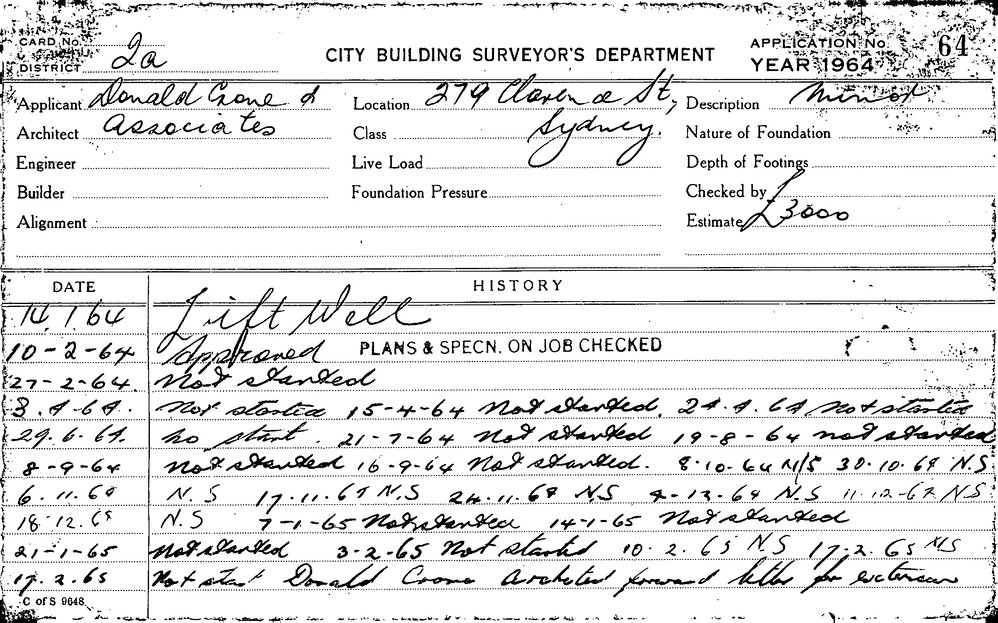 CARD No.
DISTRICT 2a
CITY BUILDING SURVEYOR'S DEPARTMENT
APPLICATION No. 64
YEAR 1964
Applicant Donald Crone &
Architect Associates
Engineer
Builder
Alignment
Location 279 Clarence St,
Class Sydney.
Live Load
Foundation Pressure
Description Minor
Nature of Foundation
Depth of Footings
Checked by
Estimate £3000
DATE HISTORY
14.1.64 Lift Well
10-2-64 Approved PLANS & SPECN. ON JOB CHECKED
27-2-64. Not started
3.4.64. Not started 15-4-64 Not started. 24.4.64 Not started
29.6.64. No start. 21-7-64 Not started 19-8-64 not started
8-9-64 Not started 16-9-64 Not started. 8.10.64 N/S 30.10.64 N.S.
6.11.64 N.S 17.11.64 N.S 24.11.64 N.S 4-12.64 N.S 11.12.64 N.S
18.12.64 N.S 7-1-65 Not started 14-1-65 Not started
21-1-65 Not started 3-2-65 Not started 10.2.65 NS 17.2.65 N/S
17.2.65 Not start Donald Crone Architect forward letter for extension
C of S 9648